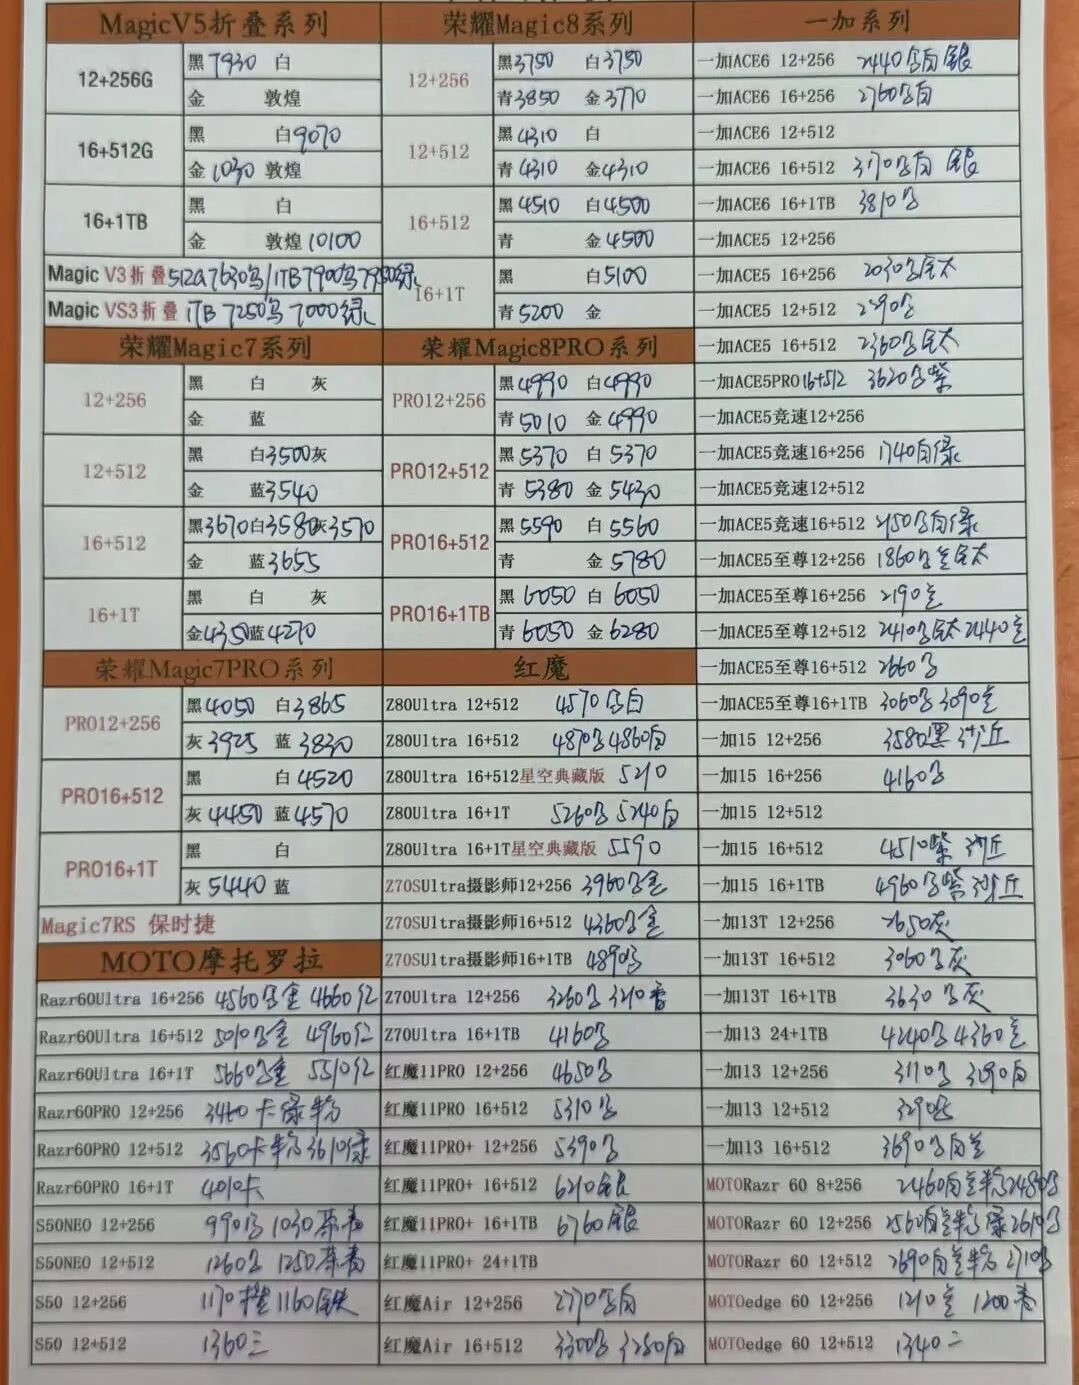 MagicV5折叠系列
12+256G
黑7930 白
金 敦煌
16+512G
黑 白9070
金1030 敦煌
16+1TB
黑 白
金 敦煌10100
Magic V3折叠512G7630乌/1TB7900乌7950绿
Magic VS3折叠 1TB 7250乌 7000绿
荣耀Magic7系列
12+256
黑 白 灰
金 蓝
12+512
黑 白3500灰
金 蓝3540
16+512
黑3670白3580灰3570
金 蓝3655
16+1T
黑 白 灰
金4350蓝4270
荣耀Magic7PRO系列
PRO12+256
黑4050 白3865
灰3925 蓝3830
PRO16+512
黑 白4520
灰4450 蓝4570
PRO16+1T
黑 白
灰5440 蓝
Magic7RS 保时捷
MOTO摩托罗拉
Razr60Ultra 16+256 4560乌金 4660红
Razr60Ultra 16+512 5010乌金 4960红
Razr60Ultra 16+1T 5660乌金 5510红
Razr60PRO 12+256 3460卡绿粉
Razr60PRO 12+512 3560卡粉 3610绿
Razr60PRO 16+1T 4010卡
S50NEO 12+256 990乌 1030茶青
S50NEO 12+512 1260乌 1250茶青
S50 12+256 1170橙1160铁
S50 12+512 1360三
荣耀Magic8系列
12+256
黑3750 白3750
青3850 金3770
12+512
黑4310 白
青4310 金4310
16+512
黑4510 白4500
青 金4500
16+1T
黑 白5100
青5200 金
荣耀Magic8PRO系列
PRO12+256
黑4990 白4990
青5010 金4990
PRO12+512
黑5370 白5370
青5380 金5430
PRO16+512
黑5590 白5560
青 金5780
PRO16+1TB
黑6050 白6050
青6050 金6280
红魔
Z80Ultra 12+512 4570乌白
Z80Ultra 16+512 4870乌4860白
Z80Ultra 16+512星空典藏版 5210
Z80Ultra 16+1T 5260乌 5240白
Z80Ultra 16+1T星空典藏版 5590
Z70SUltra摄影师12+256 3960乌金
Z70SUltra摄影师16+512 4360乌金
Z70SUltra摄影师16+1TB 4890乌
Z70Ultra 12+256 3260乌 3210香
Z70Ultra 16+1TB 4160乌
红魔11PRO 12+256 4650乌
红魔11PRO 16+512 5310乌
红魔11PRO+ 12+256 5390乌
红魔11PRO+ 16+512 6210银
红魔11PRO+ 16+1TB 6760银
红魔11PRO+ 24+1TB
红魔Air 12+256 2770乌白
红魔Air 16+512 3300乌 3250白
一加系列
一加ACE6 12+256 2440乌白 银
一加ACE6 16+256 2760乌白
一加ACE6 12+512
一加ACE6 16+512 3170乌白 银
一加ACE6 16+1TB 3810乌
一加ACE5 12+256
一加ACE5 16+256 2030乌钛
一加ACE5 12+512 2290乌
一加ACE5 16+512 2360乌钛
一加ACE5PRO16+512 3620乌紫
一加ACE5竞速12+256
一加ACE5竞速16+256 1740白绿
一加ACE5竞速12+512
一加ACE5竞速16+512 2150乌白绿
一加ACE5至尊12+256 1860乌兰钛
一加ACE5至尊16+256 2190兰
一加ACE5至尊12+512 2410乌钛 2440兰
一加ACE5至尊16+512 2660乌
一加ACE5至尊16+1TB 3060乌 3090兰
一加15 12+256 3580黑 沙丘
一加15 16+256 4160乌
一加15 12+512
一加15 16+512 4510紫 沙丘
一加15 16+1TB 4960乌紫 沙丘
一加13T 12+256 2650灰
一加13T 16+512 3060乌灰
一加13T 16+1TB 3630乌灰
一加13 24+1TB 4240乌 4360兰
一加13 12+256 3110乌 3090白
一加13 12+512 3290
一加13 16+512 3690乌白兰
MOTORazr 60 8+256 2460白兰粉2480绿
MOTORazr 60 12+256 2560白兰粉 绿2610乌
MOTORazr 60 12+512 2690白兰粉 2710绿
MOTOedge 60 12+256 1210兰 1200青
MOTOedge 60 12+512 1340二